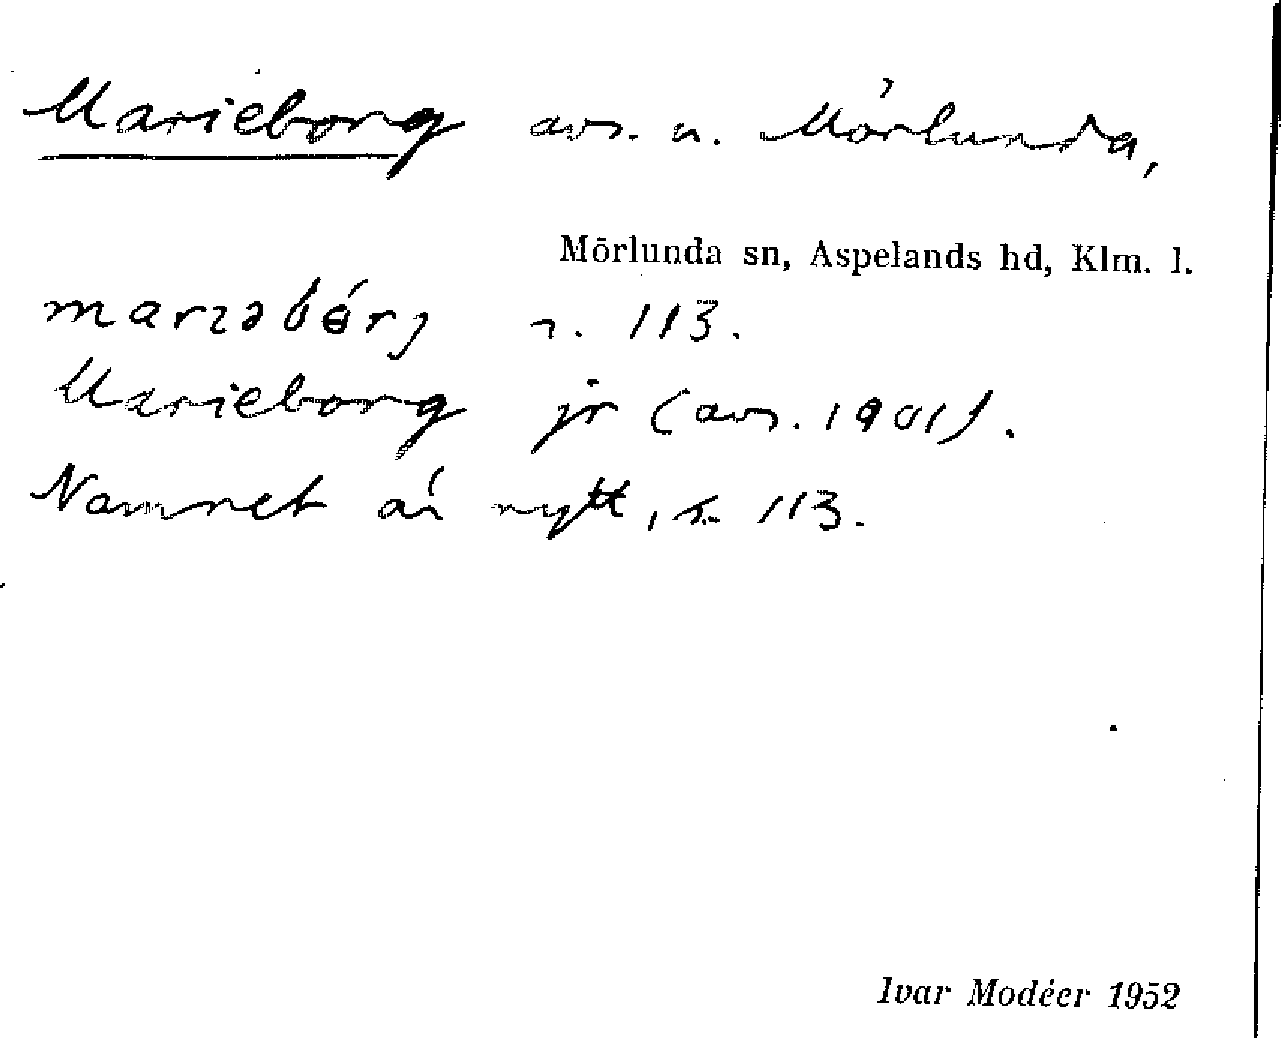 Marieborg avs. u. Mörlunda,
Mörlunda sn, Aspelands hd, Klm. l.
marıəbórj s. 113.
Marieborg jr (avs. 1901).
Namnet är nytt, s. 113.
Ivar Modéer 1952